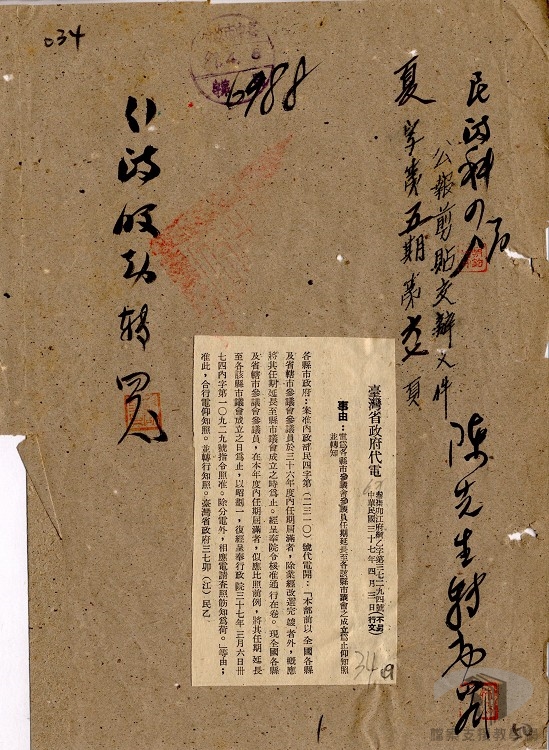 034
6988
民政科
公報剪貼交辦文件
夏字第五期第 頁
陳先生
臺灣省政府代電
叁柒卯江府民乙字第三七二九四號(不另行文)
中華民國三十七年四月三日
事由：電為各縣市參議會參議員任期延長至各該縣市議會之成立為止仰知照並轉知
各縣市政府：案准內政部民四字第(二三一〇)號代電開：「本部前以全國各縣
及省轄市參議會參議員於三十六年度內任期屆滿者，除業經改選完竣者外，概應
將其任期延長至縣市議會成立之時為止。經呈奉院令核准通行在卷。現全國各縣
及省轄市參議會參議員，在本年度內任期屆滿者，似應比照前例，將其任期延長
至各該縣市議會成立之日為止，以昭劃一，復經呈奉行政院三十七年三月六日卅
七四內字第一〇九二九號指令照准。除分電外，相應電請查照飭知為荷。」等由；
准此，合行電仰知照。並轉行知照。臺灣省政府三七卯(江)民乙
349
50